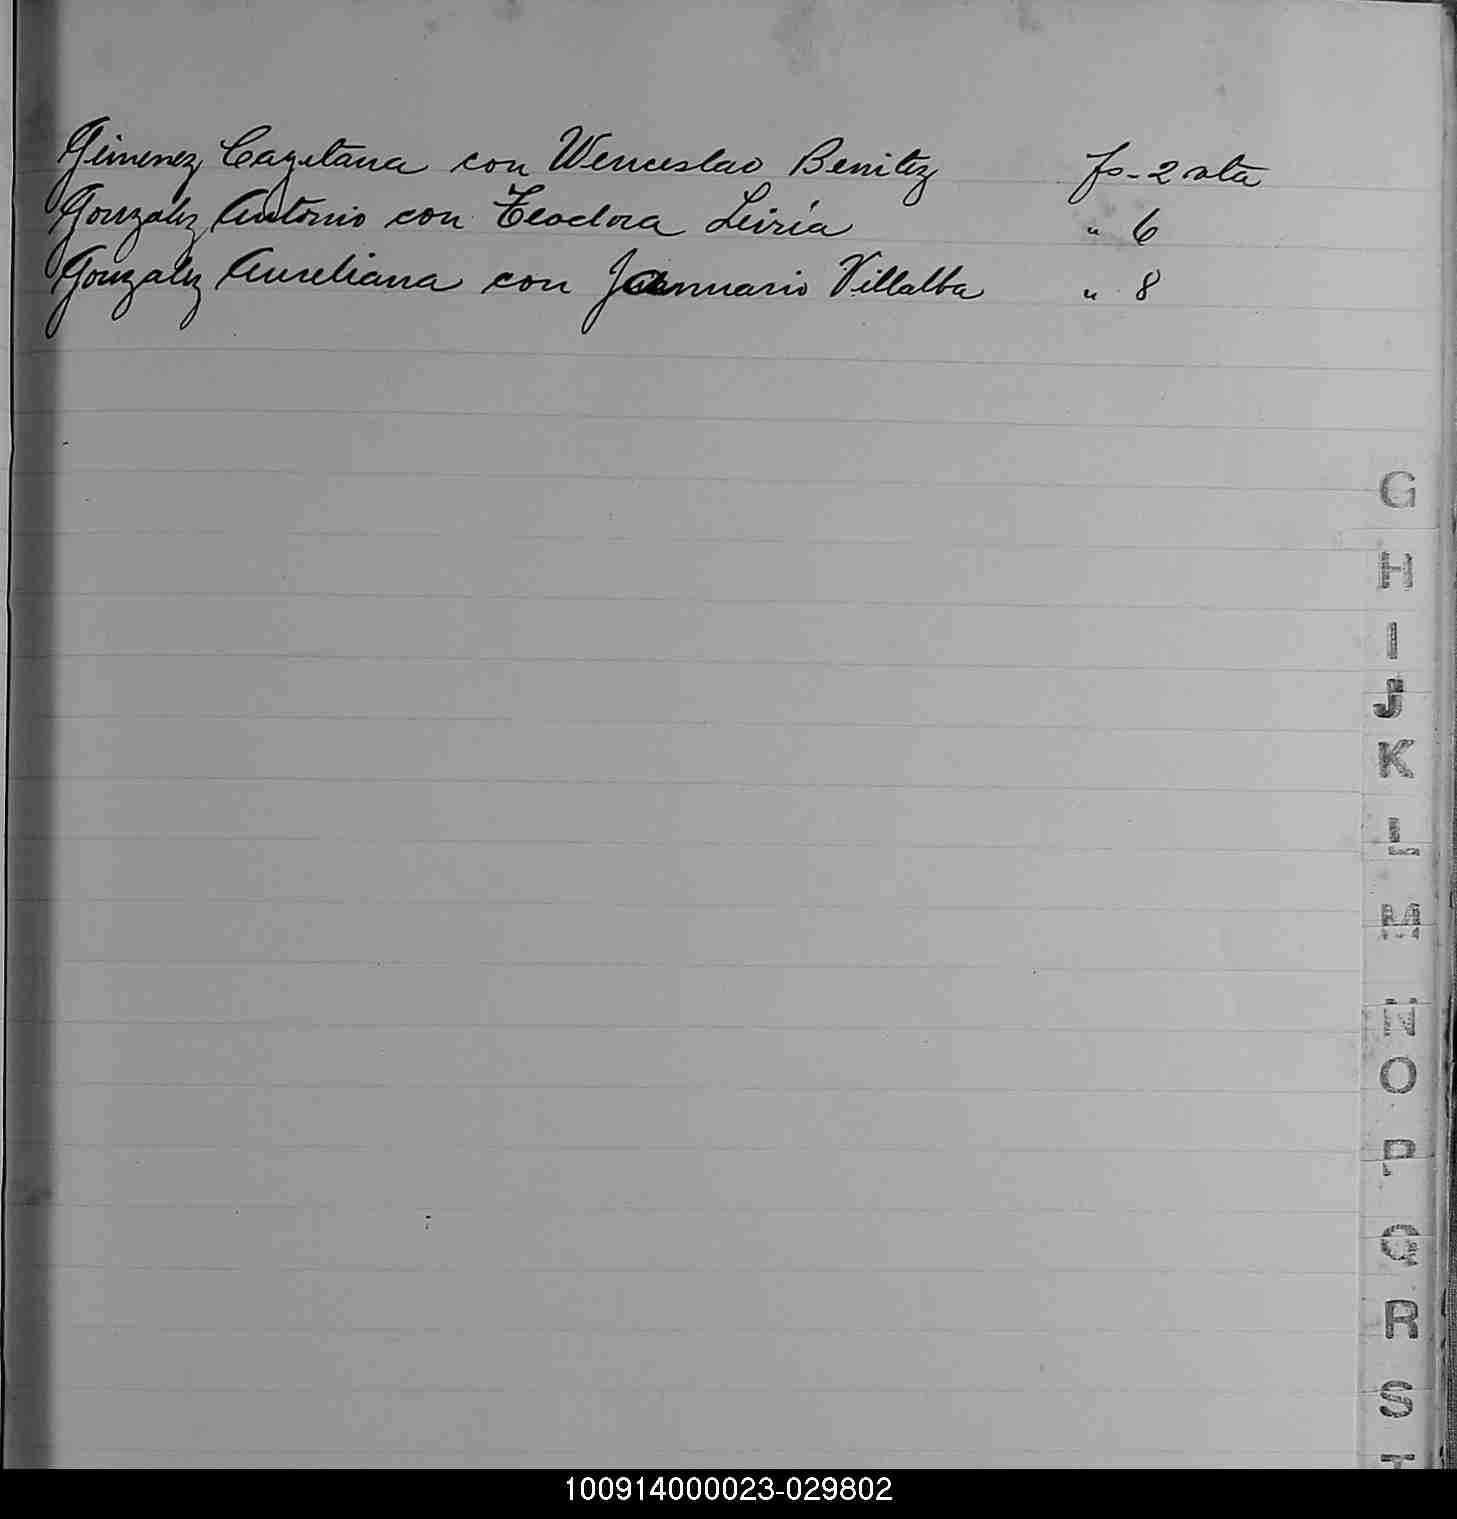 Gimenez Cayetana con Wenceslao Benitez fs-2 vta
Gonzalez Antonio con Teodora Leiria " 6
Gonzalez Aureliana con Jannuario Villalba " 8
G
H
I
J
K
L
M
N
O
P
Q
R
S
T
100914000023-029802